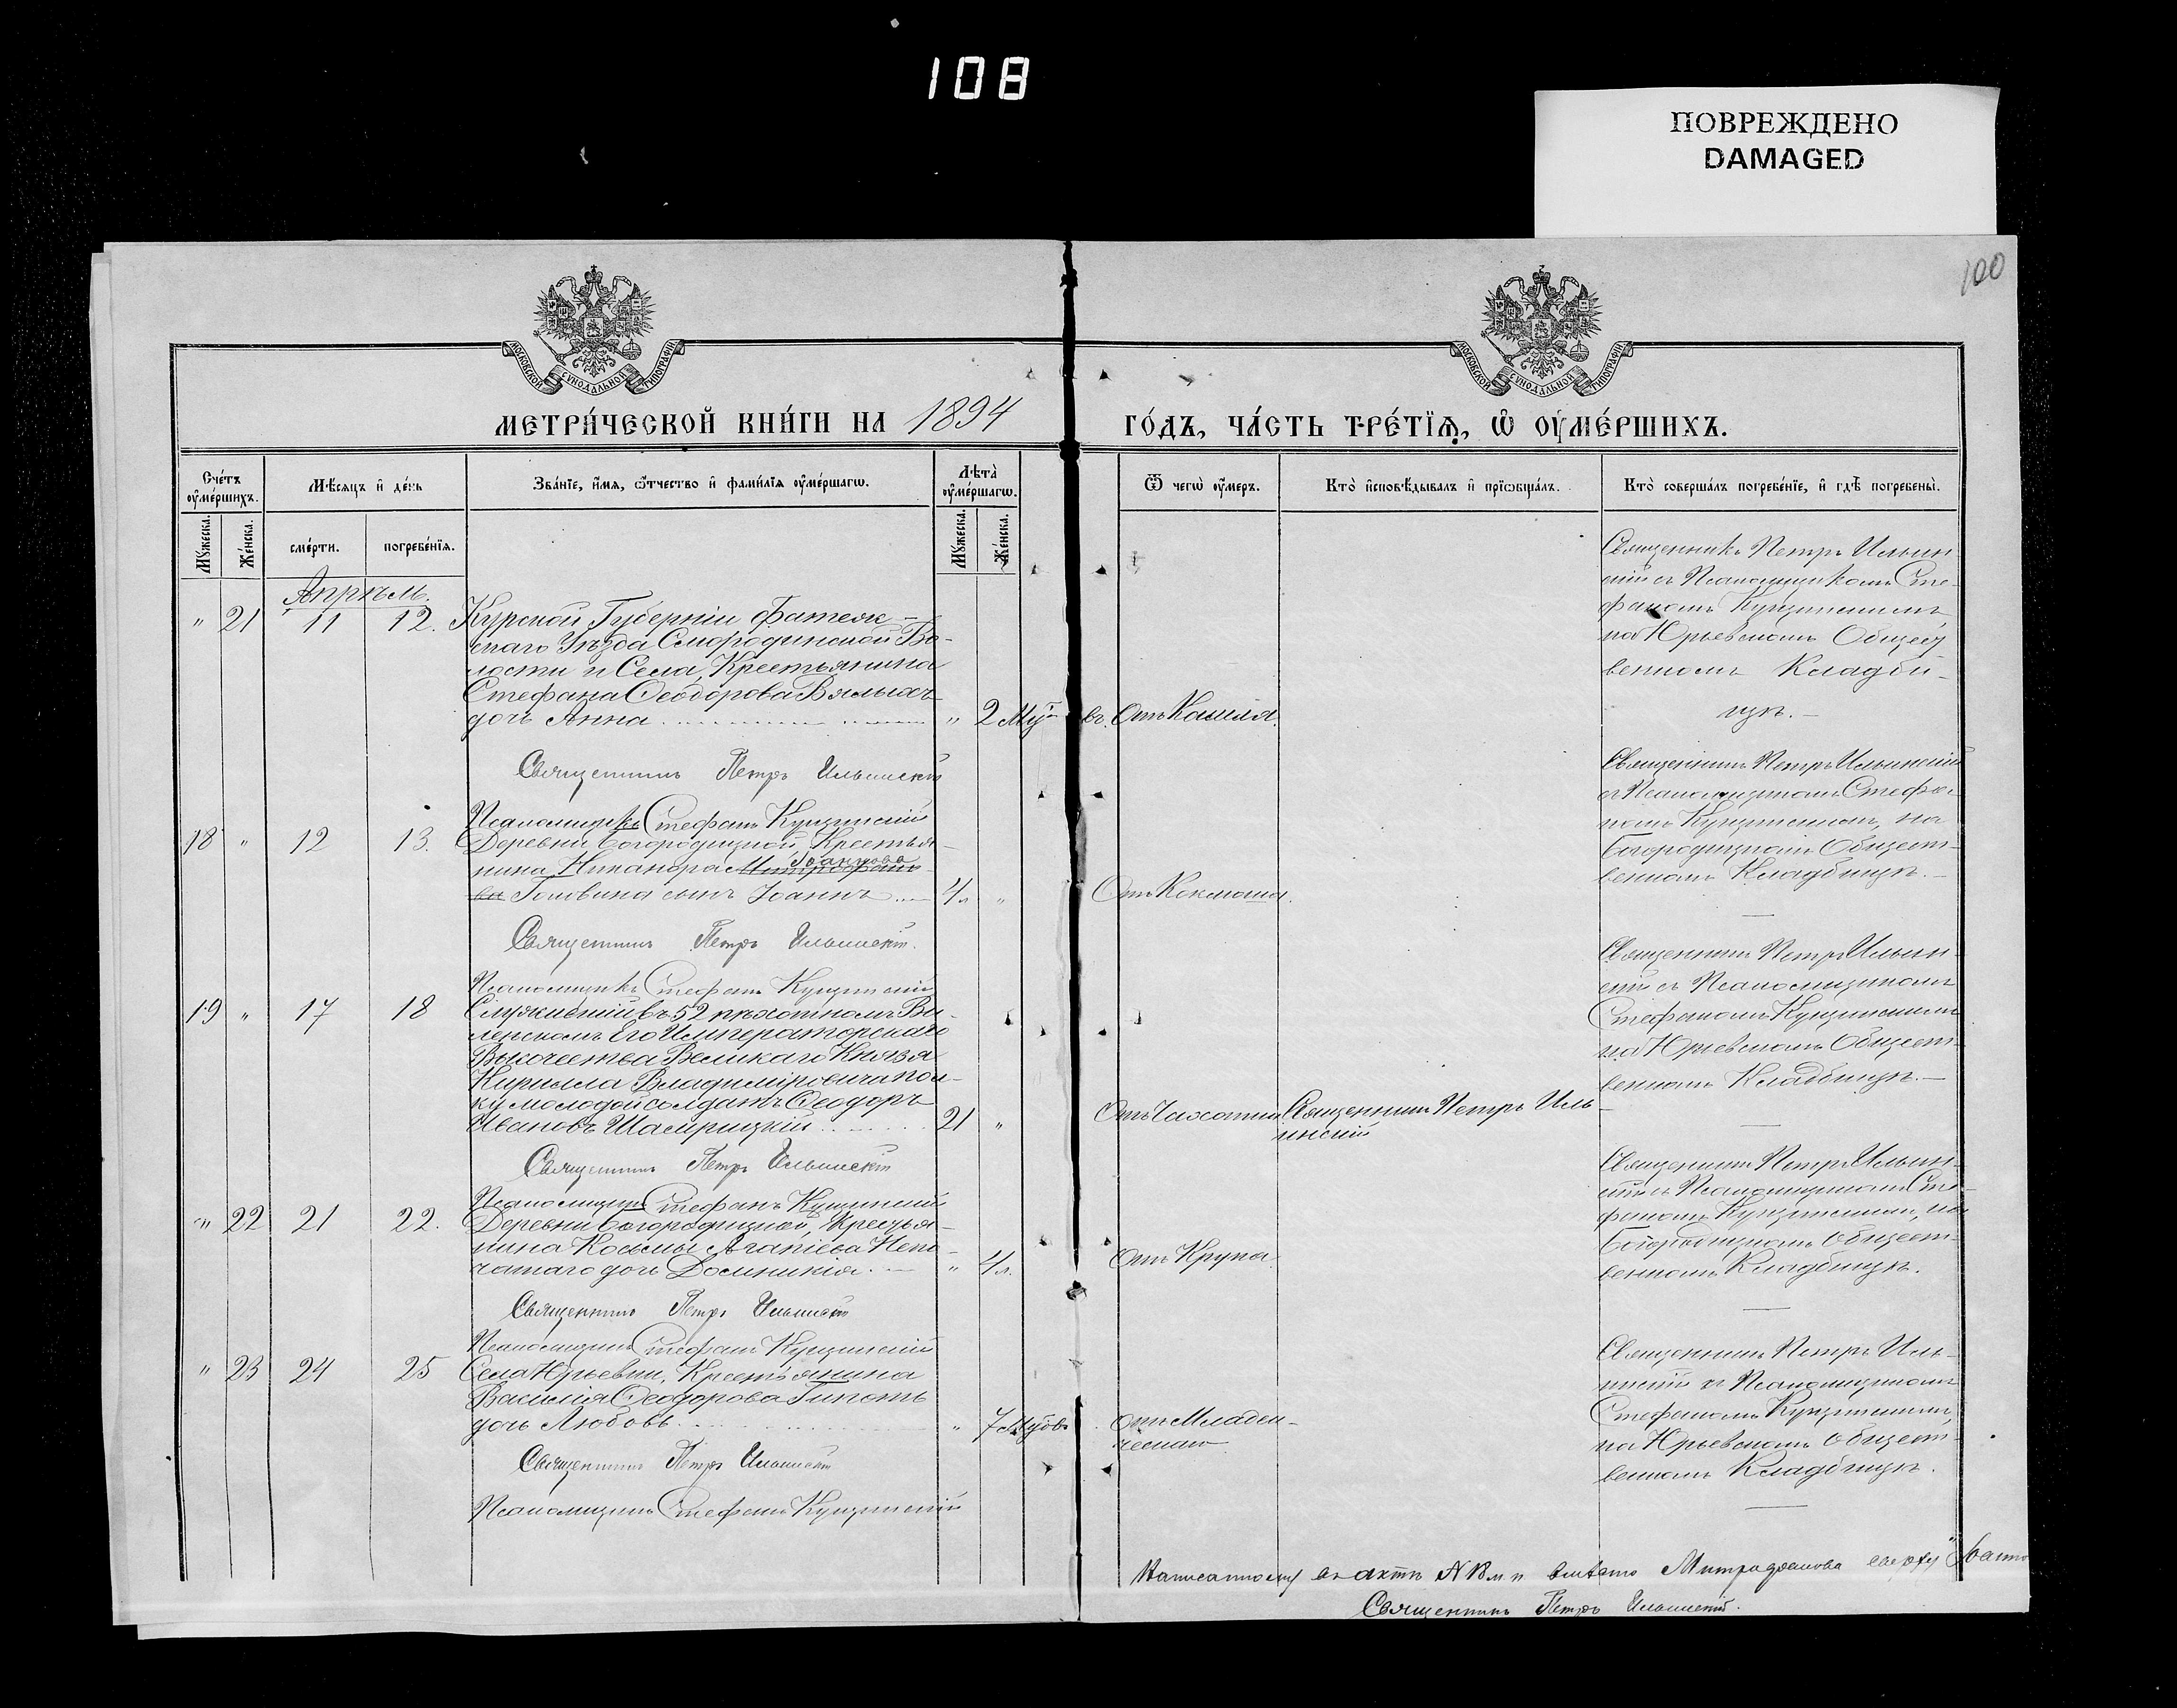 108
ПОВРЕЖДЕНО
DAMAGED
100
МОСКОВСКОЙ СѴНОДАЛЬНОЙ ТИПОГРАФІИ
МОСКОВСКОЙ СѴНОДАЛЬНОЙ ТИПОГРАФІИ
МЕТРИ́ЧЕСКОЙ КНИ́ГИ НА 1894 ГО́ДЪ, ЧА́СТЬ ТРЕ́ТЇѦ, Ѡ҆ ОУ҆МЕ́РШИХЪ.
Сче́тъ оу҆ме́ршихъ.
Мꙋ́жеска.
Же́нска.
Мѣ́сяцъ и҆ де́нь
сме́рти.
погребе́нїѧ.
Зва́нїе, и҆́мѧ, ѻ҆́тчество и҆ фами́лїѧ оу҆ме́ршагѡ.
Лѣ́та̀ оу҆ме́ршагѡ.
Мꙋ́жеска.
Же́нска.
Ѿ чегѡ̀ оу҆́меръ.
Кто̀ и҆сповѣ́дывалъ и҆ прїѡбща́лъ.
Кто̀ соверша́лъ погребе́нїе, и҆ гдѣ̀ погребены̀.
Апрѣль.
" 21 11 12.
Курской Губерніи Фатеж-
скаго Уѣзда Смородинской Во-
лости и Села, Крестьянина
Стефана Ѳеодорова Вялыхъ
дочь Анна " 2 От Кашля.
Священникъ Петръ Ильинскій
съ Псаломщикомъ Сте-
фаномъ
на Юрьевскомъ Общест
венномъ Кладби-
щѣ.-
Священникъ Петръ Ильинскій
Псаломщикъ Стефанъ
18 " 12 13.
Деревни Богородицкой, Крестья-
нина Никандра Митрофано-
Іоаннова
ва Головина сынъ Іоаннъ 4 л " От Коклюша.
Священникъ Петръ Ильинскій
съ Псаломщикомъ Стефа-
номъ на
Богородицкомъ Общест-
венномъ Кладбищѣ.-
Священникъ Петръ Ильинскій.
Псаломщикъ Стефанъ
19 " 17 18
Служившій въ 52 пѣхотномъ Ви-
ленскомъ Его Императорскаго
Высочества Великаго Князя
Кирилла Владиміровича пол-
ку молодой солдатъ Ѳеодоръ
Ивановъ 21 " Отъ Чахотки Священникъ Петръ Иль-
инскій
Священникъ Петръ Ильин-
скій съ Псаломщикомъ
Стефаномъ
на Юрьевскомъ Общест-
венномъ Кладбищѣ.-
Священникъ Петръ Ильинскій
Псаломщикъ Стефанъ
" 22 21 22.
Деревни Богородицкой, Крестья-
нина Косьмы Агапіева Непо-
чатаго дочь Домникія. " 4 л. Отъ Крупа.
Священникъ Петръ Ильин-
скій съ Псаломщикомъ Сте-
фаномъ на
Богородицкомъ Общест-
венномъ Кладбищѣ.
Священникъ Петръ Ильинскій
Псаломщикъ Стефанъ
" 23 24 25
Села Юрьевки, Крестьянина
Василія Ѳеодорова
дочь Любовь. " 7 отъ Младен-
ческаго
Священникъ Петръ Иль-
инскій съ Псаломщикомъ
Стефаномъ
на Юрьевскомъ Общест-
венномъ Кладбищѣ.
Священникъ Петръ Ильинскій
Псаломщикъ Стефанъ
Написанному въ актѣ № 18 м. п вмѣсто Митрофанова сверху
Священникъ Петръ Ильинскій.